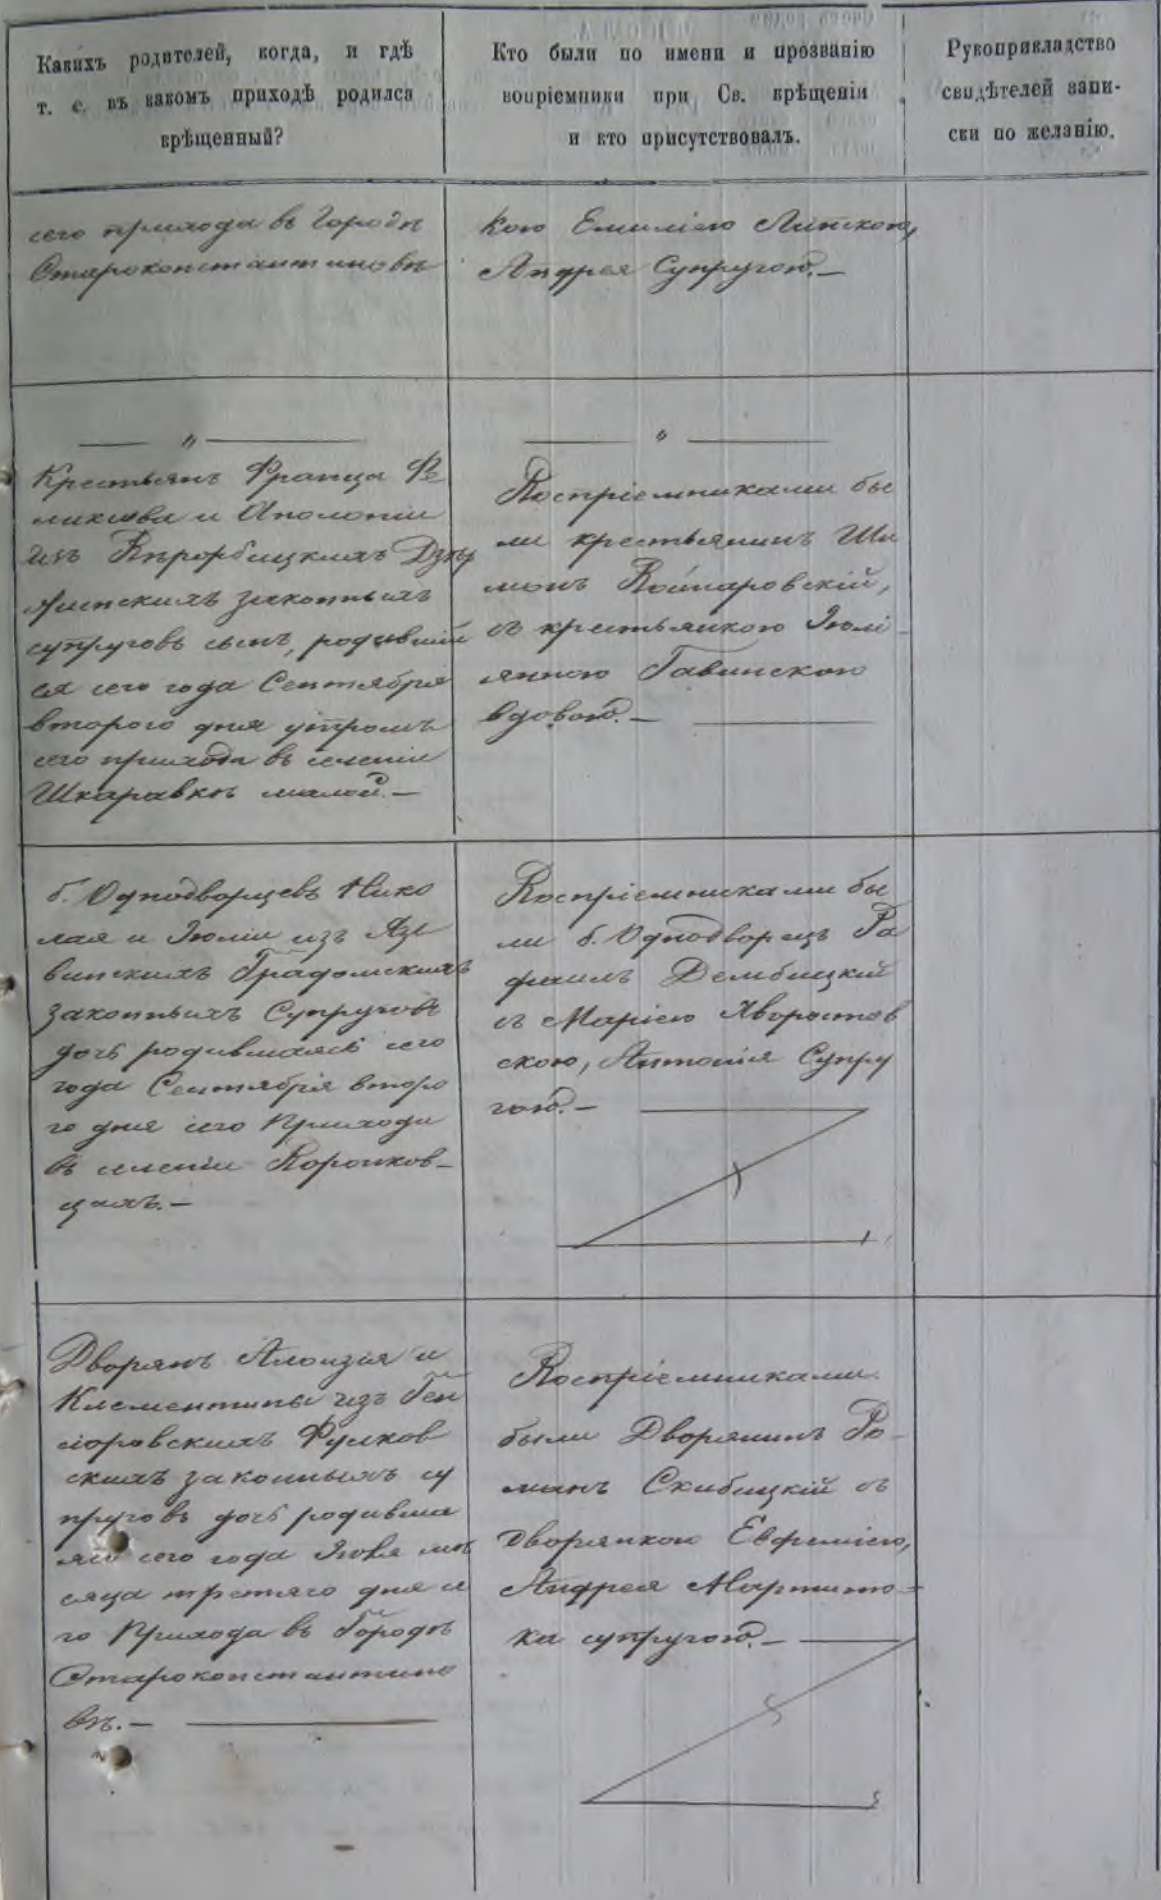 Какихъ родителей, когда, и гдѣ
т. е. въ какомъ приходѣ родился
крѣщенный?
Кто были по имени и прозванію
воспріемники при Св. крѣщеніи
и кто присутствовалъ.
Рукоприкладство
свидѣтелей запи-
ски по желанію.
сего прихода въ Городѣ
Староконстантиновѣ
кою Емиліею Липскою,
Андрея Супругою.—
Крестьянъ Франца Фе
ликсова и Аполоніи
изъ
законныхъ
супруговъ сынъ, родивший
ся сего года Сентября
втораго дня утромъ
сего прихода въ селеніи
Шкаравкѣ малой.—
Воспріемниками бы
ли крестьянинъ Ши
монъ Коймаровскій,
съ крестьянкою Юлі-
янною Гавинскою
вдовою.—
б. Однодворцевъ Нико
лая и Юліи изъ Язе
винскихъ Градомскихъ
законныхъ Супруговъ
дочь родившаяся сего
года Сентября второ
го дня сего Прихода
въ селеніи Воронков-
цахъ.—
Воспріемниками бы
ли б. Однодворецъ Ра
фаилъ Дембицкій
съ Маріею Хворостов
скою, Антонія Супру
гою.—
Дворянъ Алоизія и
Клементины изъ Ген
сіоровскихъ Фулков
скихъ законныхъ су
пруговъ дочь родивша
яся сего года Іюля мѣ
сяца третяго дня се
го Прихода въ Городѣ
Староконстантино
вѣ.—
Воспріемниками
были Дворянинъ Ро-
манъ Скибицкій съ
дворянкою Евфеміею,
Андрея Мартино-
ка супругою.—